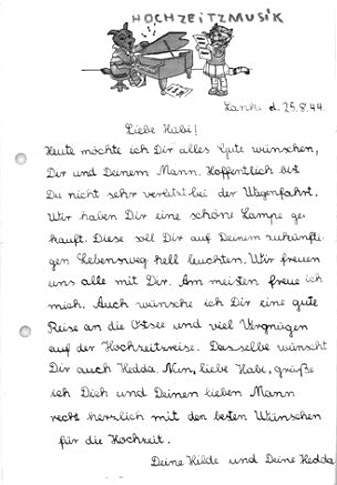 HOCHZEITZMUSIK
Lanke d. 25.8.44.
Liebe Habi!
Heute möchte ich Dir alles Gute wünschen,
Dir und Deinem Mann. Hoffentlich bist
Du nicht sehr verletzt bei der Wagenfahrt.
Wir haben Dir eine schöne Lampe ge-
kauft. Diese soll Dir auf Deinem zukünfti-
gen Lebensweg hell leuchten. Wir freuen
uns alle mit Dir. Am meisten freue ich
mich. Auch wünsche ich Dir eine gute
Reise an die Ostsee und viel Vergnügen
auf der Hochzeitsreise. Dasselbe wünscht
Dir auch Hedda. Nun, liebe Habi, grüße
ich Dich und Deinen lieben Mann
recht herzlich mit den besten Wünschen
für die Hochzeit.
Deine Hilde und Deine Hedda